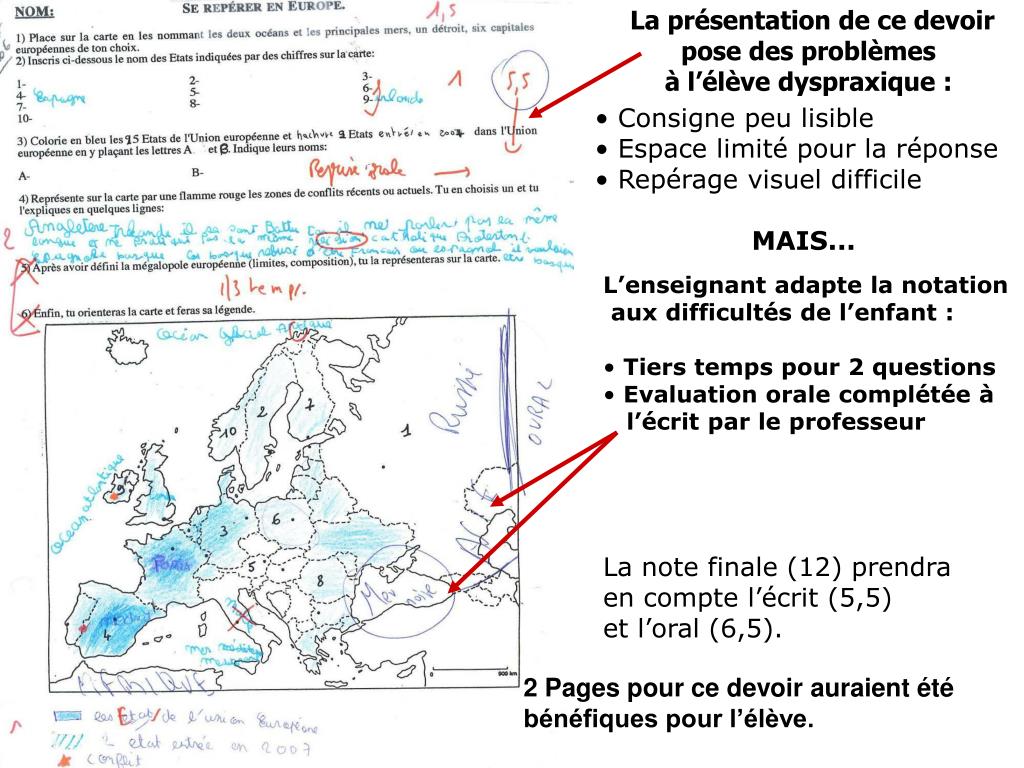 NOM:
SE REPÉRER EN EUROPE.
1,5
1) Place sur la carte en les nommant les deux océans et les principales mers, un détroit, six capitales
européennes de ton choix.
2) Inscris ci-dessous le nom des Etats indiquées par des chiffres sur la carte:
1- 2- 3-
4- Espagne 5- 6-
7- 8- 9- Irlande
10-
1
5,5
3) Colorie en bleu les 25 Etats de l'Union européenne et hachure 2 Etats entrés en 2007 dans l'Union
européenne en y plaçant les lettres A et B. Indique leurs noms:
A- B-
Reprise orale
4) Représente sur la carte par une flamme rouge les zones de conflits récents ou actuels. Tu en choisis un et tu
l'expliques en quelques lignes:
2
Angletere Irlande il se sont Battu il parlent pas la même
langue et ne pratique pas la même catholique Protestant.
espagnole basque
5) Après avoir défini la mégalopole européenne (limites, composition), tu la représenteras sur la carte.
1/3 temps.
6) Enfin, tu orienteras la carte et feras sa légende.
Océan Glacial Arctique
Russie
OURAL
10
2
7
1
océan atlantique
9
3
6
Paris
5
8
Mer noire
4
Madrid
mer méditer
0 900 km
AFRIQUE
les Etat de l'union Européene
2 etat entrée en 2007
conflit
La présentation de ce devoir
pose des problèmes
à l’élève dyspraxique :
• Consigne peu lisible
• Espace limité pour la réponse
• Repérage visuel difficile
MAIS…
L’enseignant adapte la notation
aux difficultés de l’enfant :
• Tiers temps pour 2 questions
• Evaluation orale complétée à
l’écrit par le professeur
La note finale (12) prendra
en compte l’écrit (5,5)
et l’oral (6,5).
2 Pages pour ce devoir auraient été
bénéfiques pour l’élève.